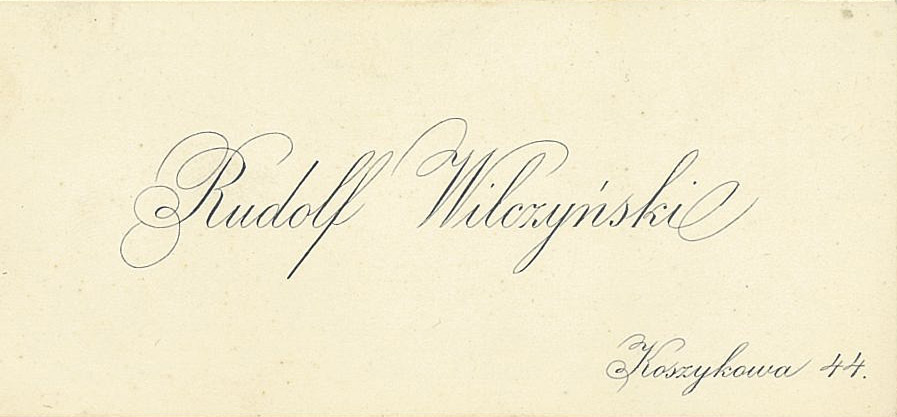 Rudolf Wilczyński
Koszykowa 44.